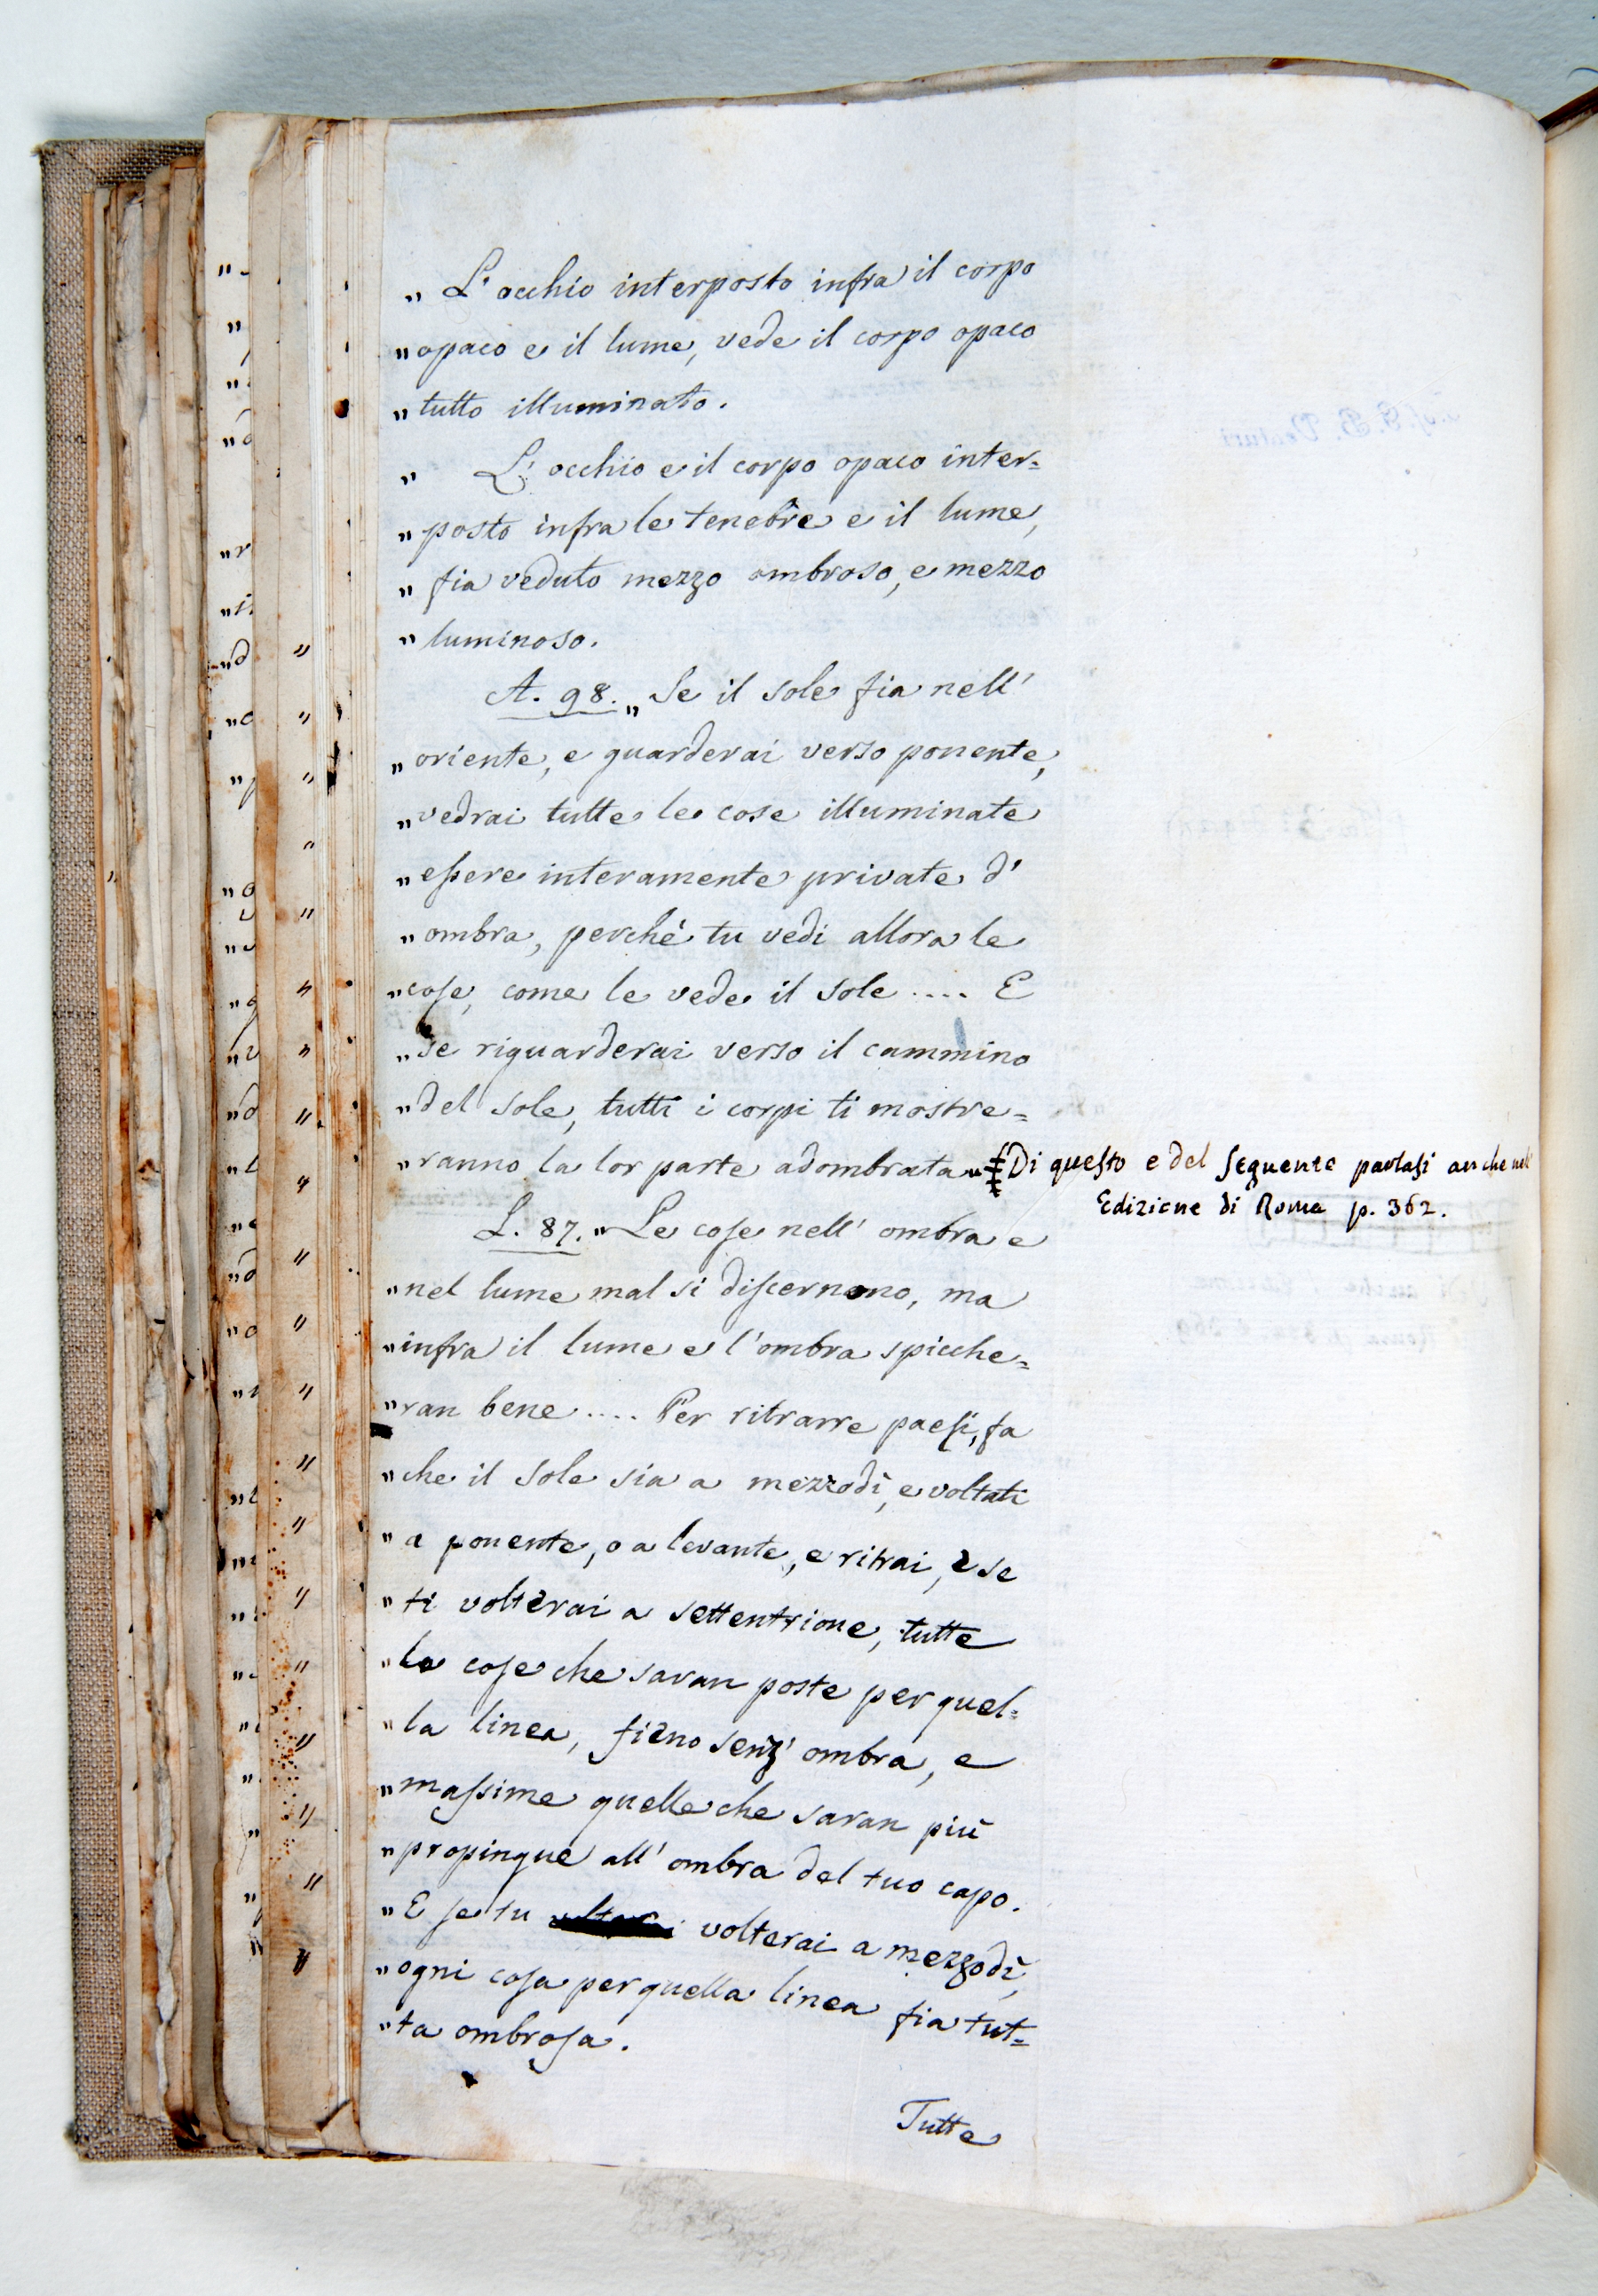 „ L'occhio interposto infra il corpo
„ opaco e il lume, vede il corpo opaco
„ tutto illuminato.
„ L'occhio e il corpo opaco inter=
„ posto infra le tenebre e il lume,
„ fia veduto mezzo ombroso, e mezzo
„ luminoso.
A. 98. „ Se il sole fia nell'
„ oriente, e guarderai verso ponente,
„ vedrai tutte le cose illuminate
„ eſsere interamente private d'
„ ombra, perché tu vedi allora le
„ coſe, come le vede il sole .... E
„ se riguarderai verso il cammino
„ del sole, tutti i corpi ti mostre=
„ ranno la lor parte adombrata „ Di queſto e del ſeguente parlaſi anche nell'
Edizione di Roma p. 362.
L. 87. „ Le coſe nell' ombra e
„ nel lume mal si diſcernono, ma
„ infra il lume e l'ombra spicche=
„ ran bene .... Per ritrarre paeſi, fa
„ che il sole sia a mezzodì, e voltati
„ a ponente, o a levante, e ritrai, e se
„ ti volterai a settentrione, tutte
„ le coſe che saran poste per quel=
„ la linea, fieno senz' ombra, e
„ maſsime quelle che saran più
„ propinque all' ombra del tuo capo.
„ E ſe tu volterai a mezzodì,
„ ogni coſa per quella linea fia tut=
„ ta ombroſa.
Tutte